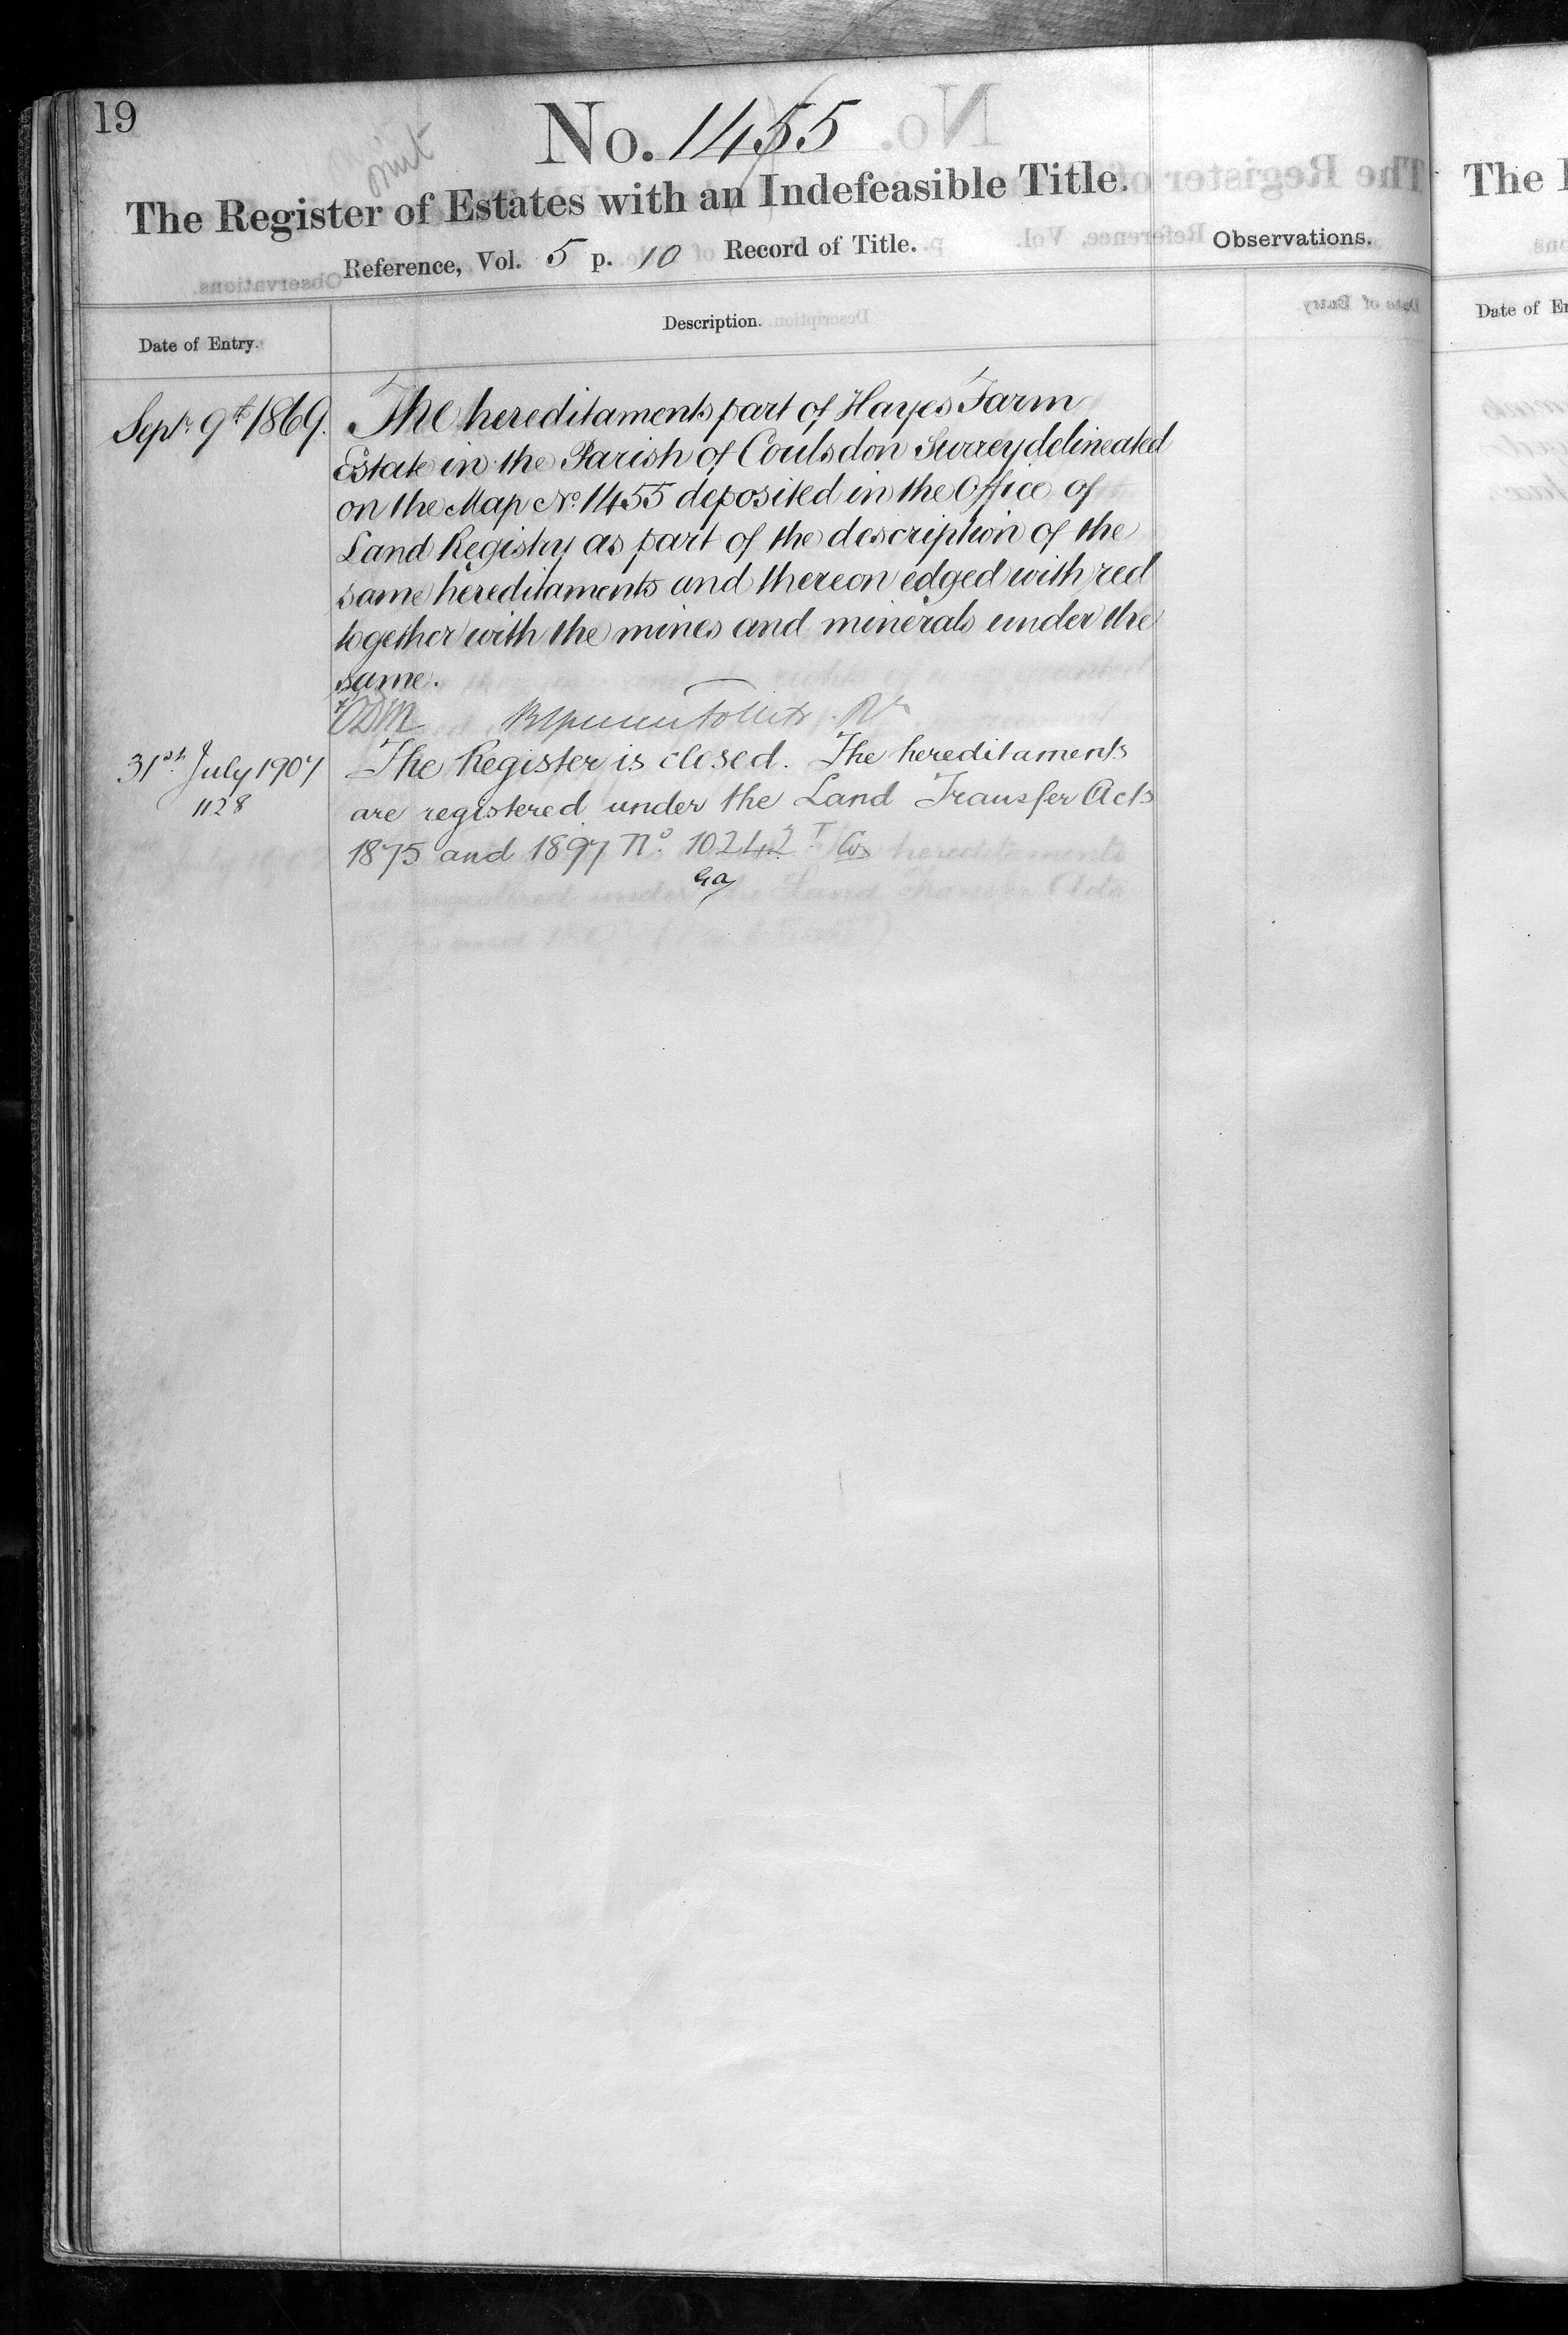 19
No. 1455
The Register of Estates with an Indefeasible Title.
Reference, Vol. 5 p. 10 Record of Title.
Observations.
Date of Entry.
Description.
Sept. 9th 1869. The hereditaments part of Hayes Farm
Estate in the Parish of Coulsdon Surrey delineated
on the Map No. 1455 deposited in the Office of
Land Registry as part of the description of the
same hereditaments and thereon edged with red
together with the mines and minerals under the
same.
31st July 1907 The Register is closed. The hereditaments
1128
are registered under the Land Transfer Acts
1875 and 1897 No.
The
Date of